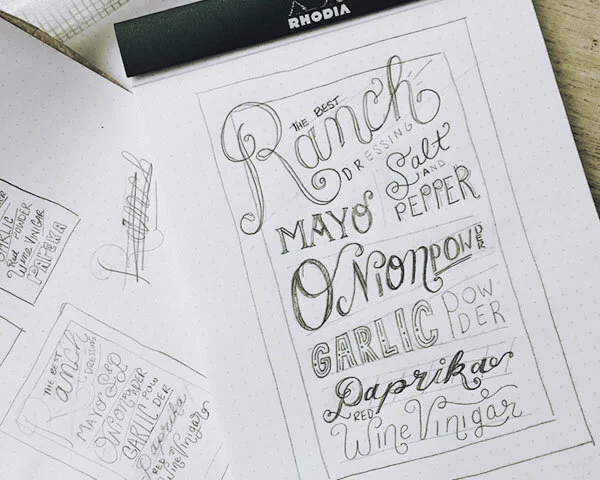 RHODIA
THE BEST
Ranch
DRESSING
Salt
AND
PEPPER
MAYO
ONionPOWDER
GARLIC POWDER
Paprika
RED
Wine Vinigar
Ranch
GARLIC
POWDER
Red
Wine Vinigar
PAPRIKA
THE BEST
Ranch
DRESSING
MAYO S&P
ONionPOWDER
GARLIC POWDER
Paprika
RED
Wine Vinigar